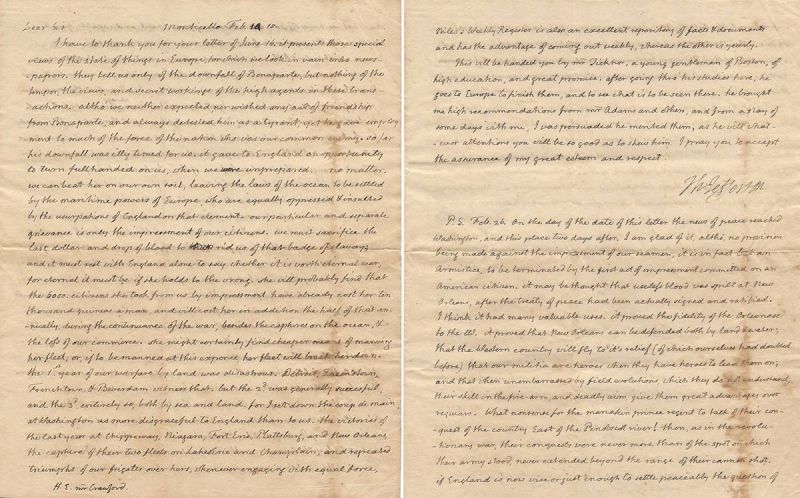 Dear Sir Monticello Feb. 14. 15.
I have to thank you for your letter of June 16. it presents those special
views of the state of things in Europe, for which we look in vain into news-
papers. they tell us only of the downfall of Bonaparte, but nothing of the
temper, the views, and secret workings of the high agents in these trans-
actions. altho' we neither expected nor wished any act of friendship
from Bonaparte, and always detested him as a tyrant, yet he gave employ-
ment to much of the force of the nation who was our common enemy. so far
his downfall was illy timed for us. it gave to England an opportunity
to turn full handed on us, when we were unprepared. no matter.
we can beat her on our own soil, leaving the laws of the ocean to be settled
by the maritime powers of Europe, who are equally oppressed & insulted
by the usurpations of England on that element. our particular and separate
grievance is only the impressment of our citizens. we must sacrifice the
last dollar and drop of blood to rid us of that badge of slavery;
and it must rest with England alone to say whether it is worth eternal war,
for eternal it must be if she holds to the wrong. she will probably find that
the 6000. citizens she took from us by impressment have already cost her ten
thousand guineas a man, and will cost her in addition the half of that an-
nually, during the continuance of the war, besides the captures on the ocean, &
the loss of our commerce. she might certainly find cheaper means of manning
her fleet, or, if to be manned at this expence, her fleet will break her down.
the 1st. year of our warfare by land was disastrous. Detroit, Queenstown,
Frenchtown, & Beverdam witness that. but the 2d. was generally successful,
and the 3d. entirely so, both by sea and land. for I set down the coup de main
at Washington as more disgraceful to England than to us. the victories of
the last year at Chippeway, Niagara, Fort Erie, Plattsburg, and New Orleans,
the capture of their two fleets on Lakes Erie and Champlain, and repeated
triumphs of our frigates over hers, whenever engaging with equal force,
H. E. mr Crawford.
Niles's Weekly Register is also an excellent repository of facts & documents
and has the advantage of coming out weekly, whereas the other is yearly.
This will be handed you by mr Ticknor, a young gentleman of Boston, of
high education, and great promise. after going thro' his studies here, he
goes to Europe to finish them, and to see what is to be seen there. he brought
me high recommendations from mr Adams and others, and from a stay of
some days with me, I was persuaded he merited them, as he will what-
ever attentions you will be so good as to shew him. I pray you to accept
the assurance of my great esteem and respect.
Th: Jefferson
P.S. Feb. 26. On the day of the date of this letter the news of peace reached
Washington, and this place two days after. I am glad of it, altho' no provision
being made against the impressment of our seamen, it is in fact but an
Armistice, to be terminated by the first act of impressment committed on an
American citizen. it may be thought that useless blood was spilt at New
Orleans, after the treaty of peace had been actually signed and ratified.
I think it had many valuable uses. it proved the fidelity of the Orleanese
to the US. it proved that New Orleans can be defended both by land & water;
that the Western country will fly to it's relief (of which ourselves had doubted
before) that our militia are heroes when they have heroes to lead them on;
and that when unembarrassed by field evolutions, which they do not understand,
their skill in the fire-arm, and deadly aim, give them great advantages over
regulars. What nonsense for the manakin prince regent to talk of their con-
quest of the country East of the Penobscot river! then, as in the revolu-
-tionary war, their conquests were never more than of the spot on which
their army stood, never extended beyond the range of their cannon shot.
if England is now wise or just enough to settle peaceably the question of